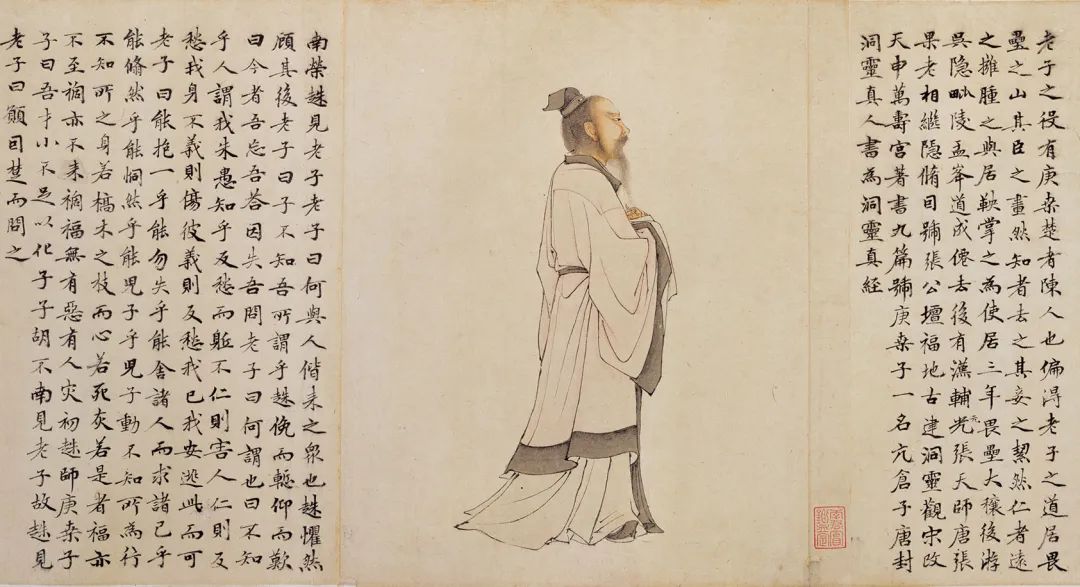 老子之役有庚桑楚者陳人也偏得老子之道居畏
壘之山其臣之畫然知者去之其妾之絜然仁者遠
之擁腫之與居鞅掌之為使居三年畏壘大穰後游
吳隱毗陵孟峯道成僊去後有漢輔光元張天師唐張
果老相繼隱脩因號張公壇福地古建洞靈觀宋改
天申萬壽宮著書九篇號庚桑子一名亢倉子唐封
洞靈真人書為洞靈真經
南榮趎見老子老子曰何與人偕来之衆也趎懼然
顧其後老子曰子不知吾所謂乎趎俛而慙仰而歎
曰今者吾忘吾荅因失吾問老子曰何謂也曰不知
乎人謂我朱愚知乎反愁而軀不仁則害人仁則反
愁我身不義則傷彼義則反愁我已我安逃此而可
老子曰能抱一乎能勿失乎能舍諸人而求諸已乎
能翛然乎能侗然乎能兒子乎兒子動不知所為行
不知所之身若槁木之枝而心若死灰若是者福亦
不至禍亦不来禍福無有惡有人灾初趎師庚桑子
子曰吾才小不足以化子子胡不南見老子故趎見
老子曰願因楚而問之